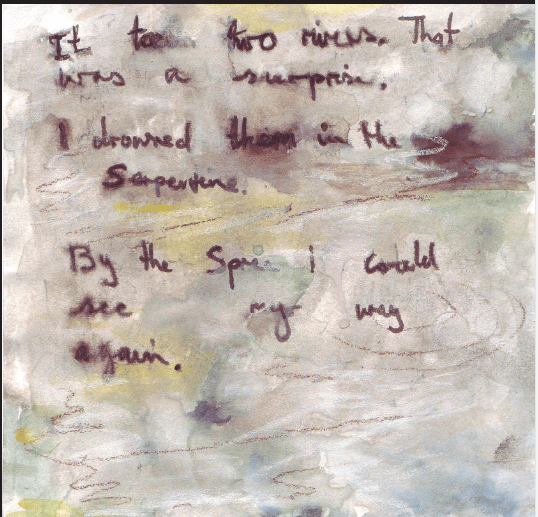 It took two rivers. That
was a surprise.
I drowned them in the
Serpentine.
By the Spree i could
see my way
again.